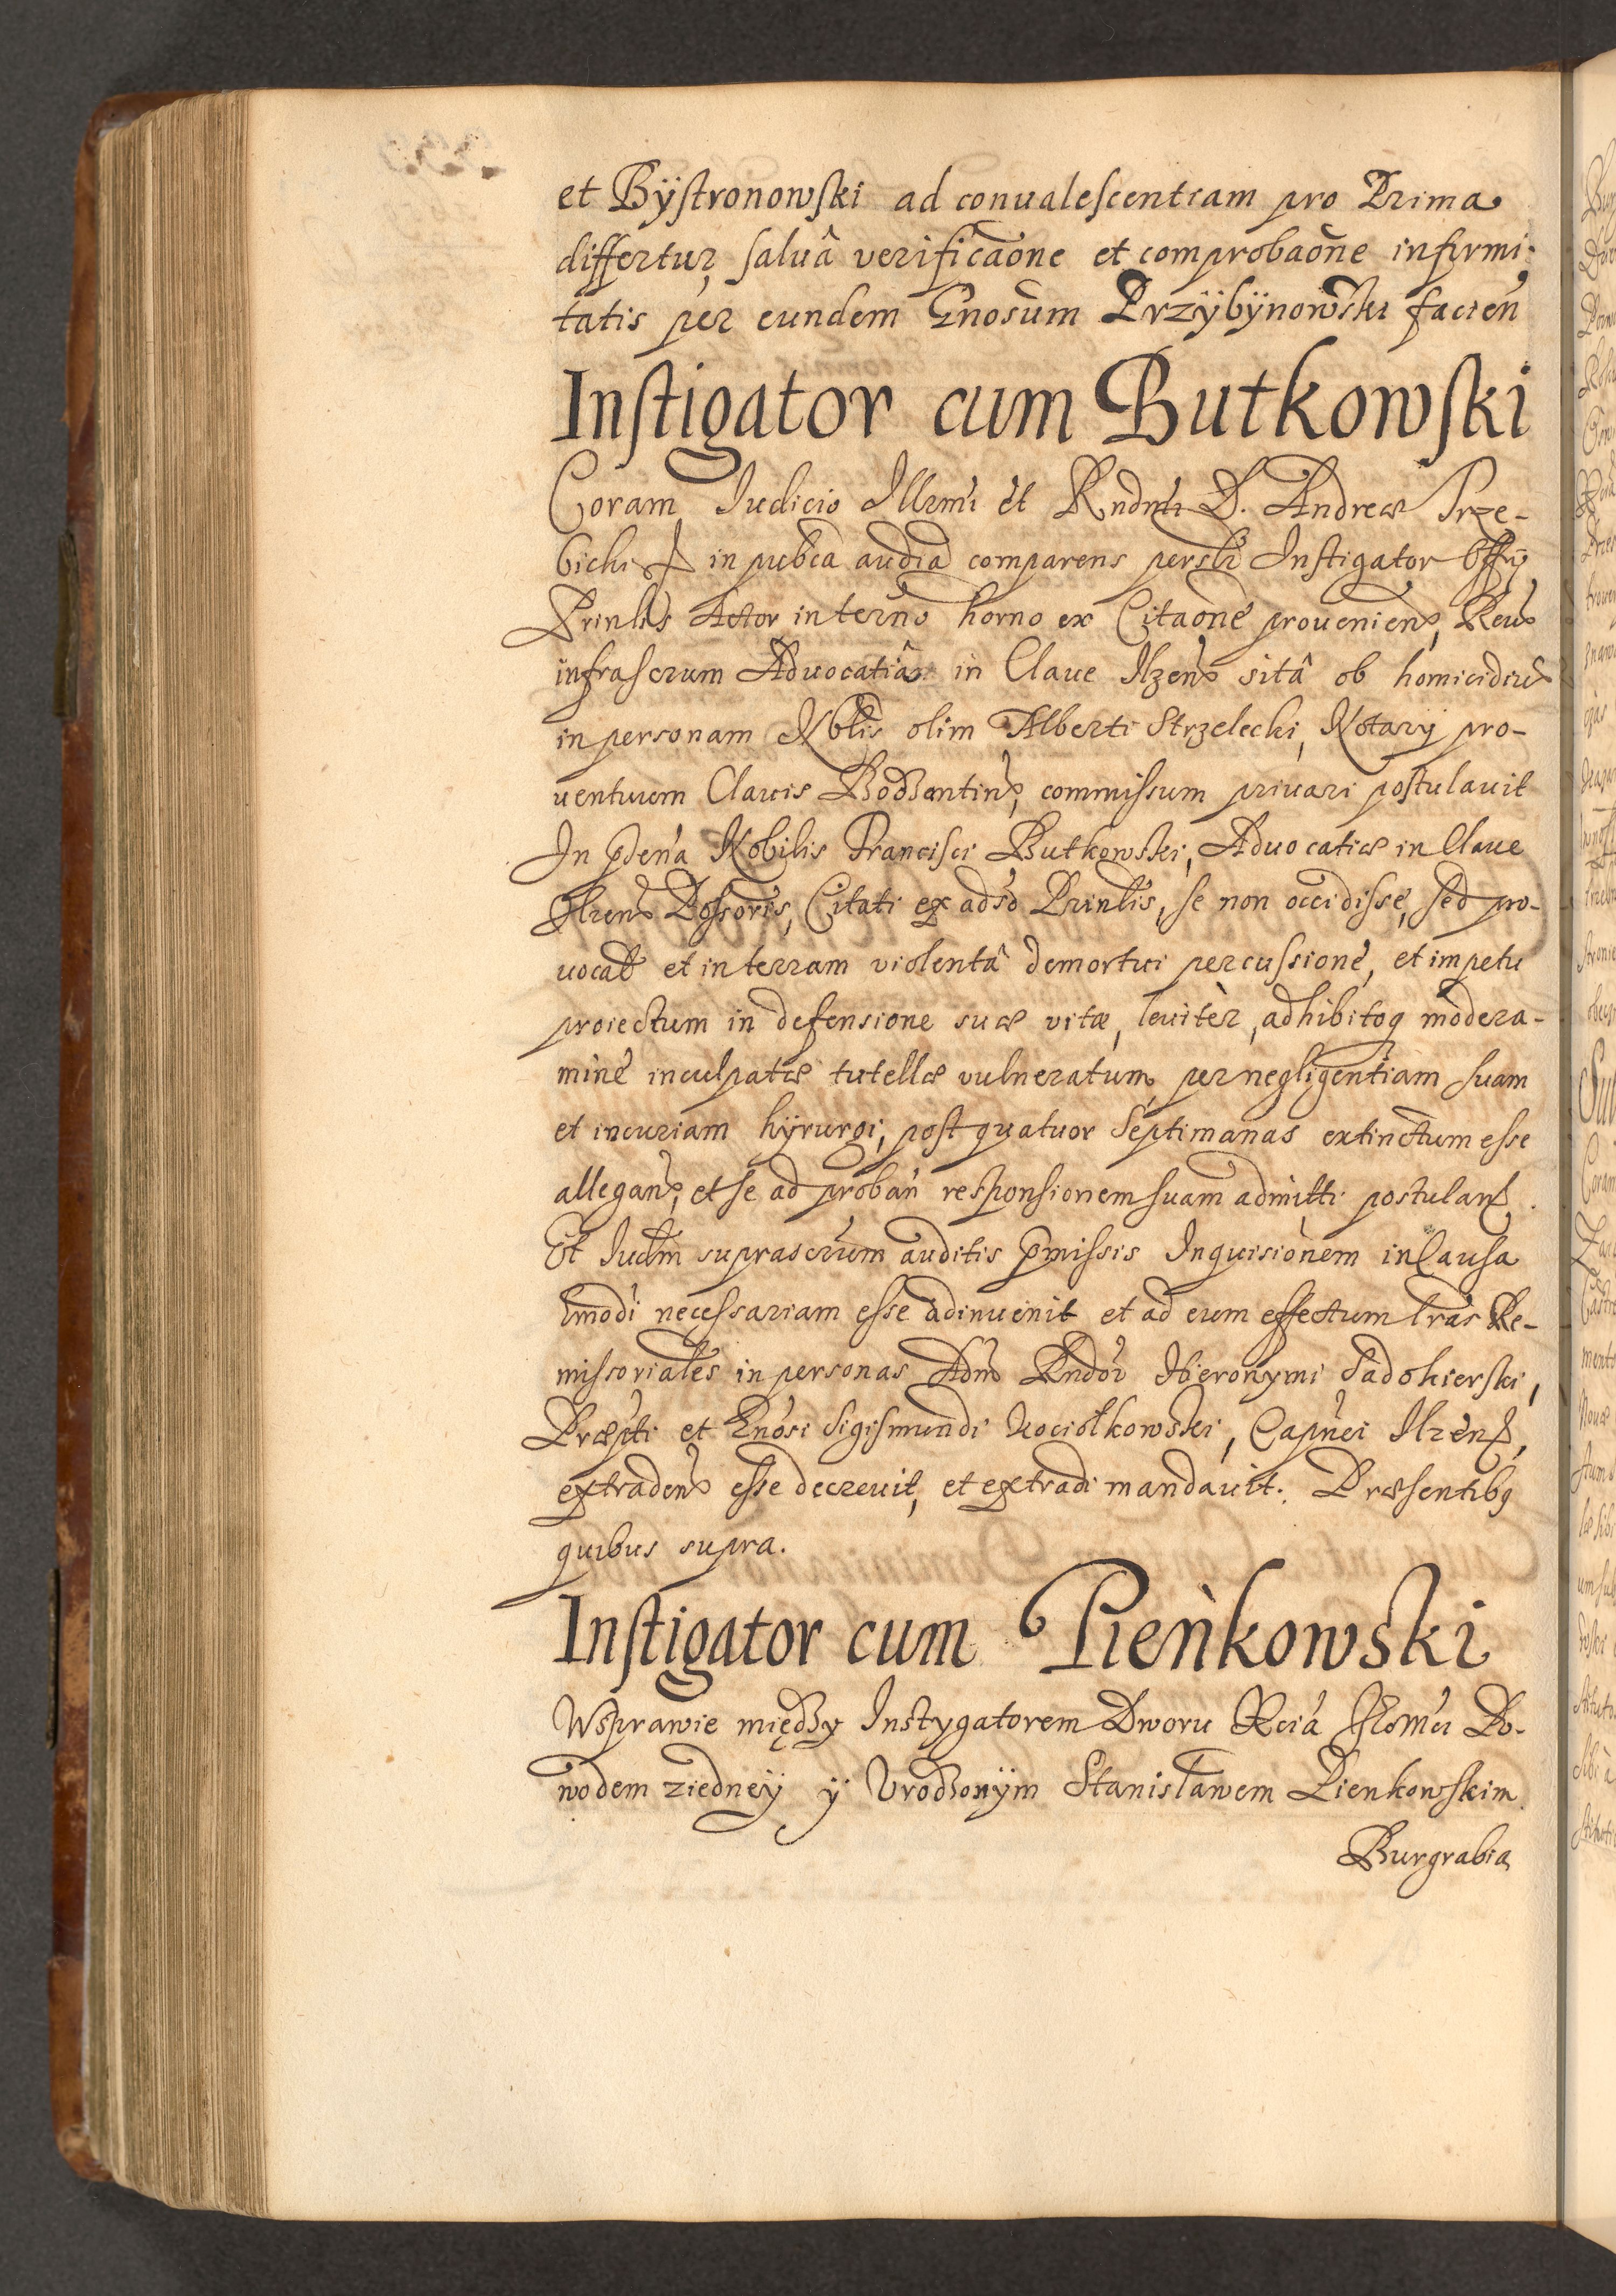 et Bÿstronowski ad convalescentiam pro Prima
differtur, salvâ verificaone et comprobaone infirmi:
tatis per eundem Gnosum Przÿbÿnowski facien
Instigator cum Butkowski
Coram Iudicio Illrmi et Rndmi D. Andreæ Trze-
bicki in pubca audia comparens perslr Instigator Offij
Prinlis Actor in terno horno ex Citaone provenien, Reu
infrascrum Advocatiâ in Clave Ilzen sitâ ob homicidiu
in personam Nblis olim Alberti Strzelecki, Notarij pro-
ventuum Clavis Bodzantin, commissum privari postulavit
In pdena Nobilis Francisci Butkowski, Advocatiæ in Clave
Ilzen Possoris, Citati ex adso Prinlis, se non occidisse, sed pro-
vocat et in terram violentâ demortui percussione, et impetu
proiectum in defensione suæ vitæ, leviter, adhibitoq modera-
mine inculpatæ tutellæ vulneratum, per negligentiam suam
et incuriam hÿrurgi, post quatuor Septimanas extinctum esse
allegan, et se ad proban responsionem suam admitti postulan.
Et Iudm suprascrum auditis pmissis Inquisionem in Causa
hmodi necessariam esse adinvenit et ad eum effectum lras Re-
missoriales in personas Adm Rndor Hieronymi Sadokierski,
Præpti et Gnosi Sigismundi Kociołkowski, Capnei Ilzen,
extraden esse decrevit, et extradi mandavit. Præsentibq
quibus supra.
Instigator cum Pieńkowski
Wsprawie między Instygatorem Dworu Xcia Jłomci Po-
wodem ziedneÿ ÿ Vrodzonÿm Stanisławem Pienkowskim
Burgrabia